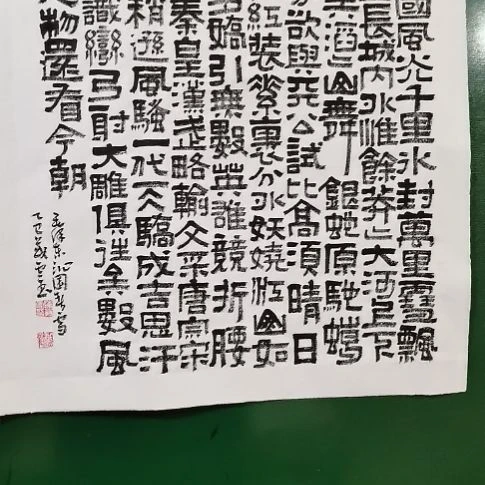 國風光千里冰封萬里雪飄
長城內外惟餘莽莽大河上下
滔山舞銀蛇原馳蠟
欲與天公試比高須晴日
紅裝素裹分外妖嬈江山如
嬌引無數英雄競折腰
秦皇漢武略輸文采唐宗宋
稍遜風騷一代天驕成吉思汗
識彎弓射大雕俱往矣數風
物還看今朝
毛澤東沁園春雪
乙巳